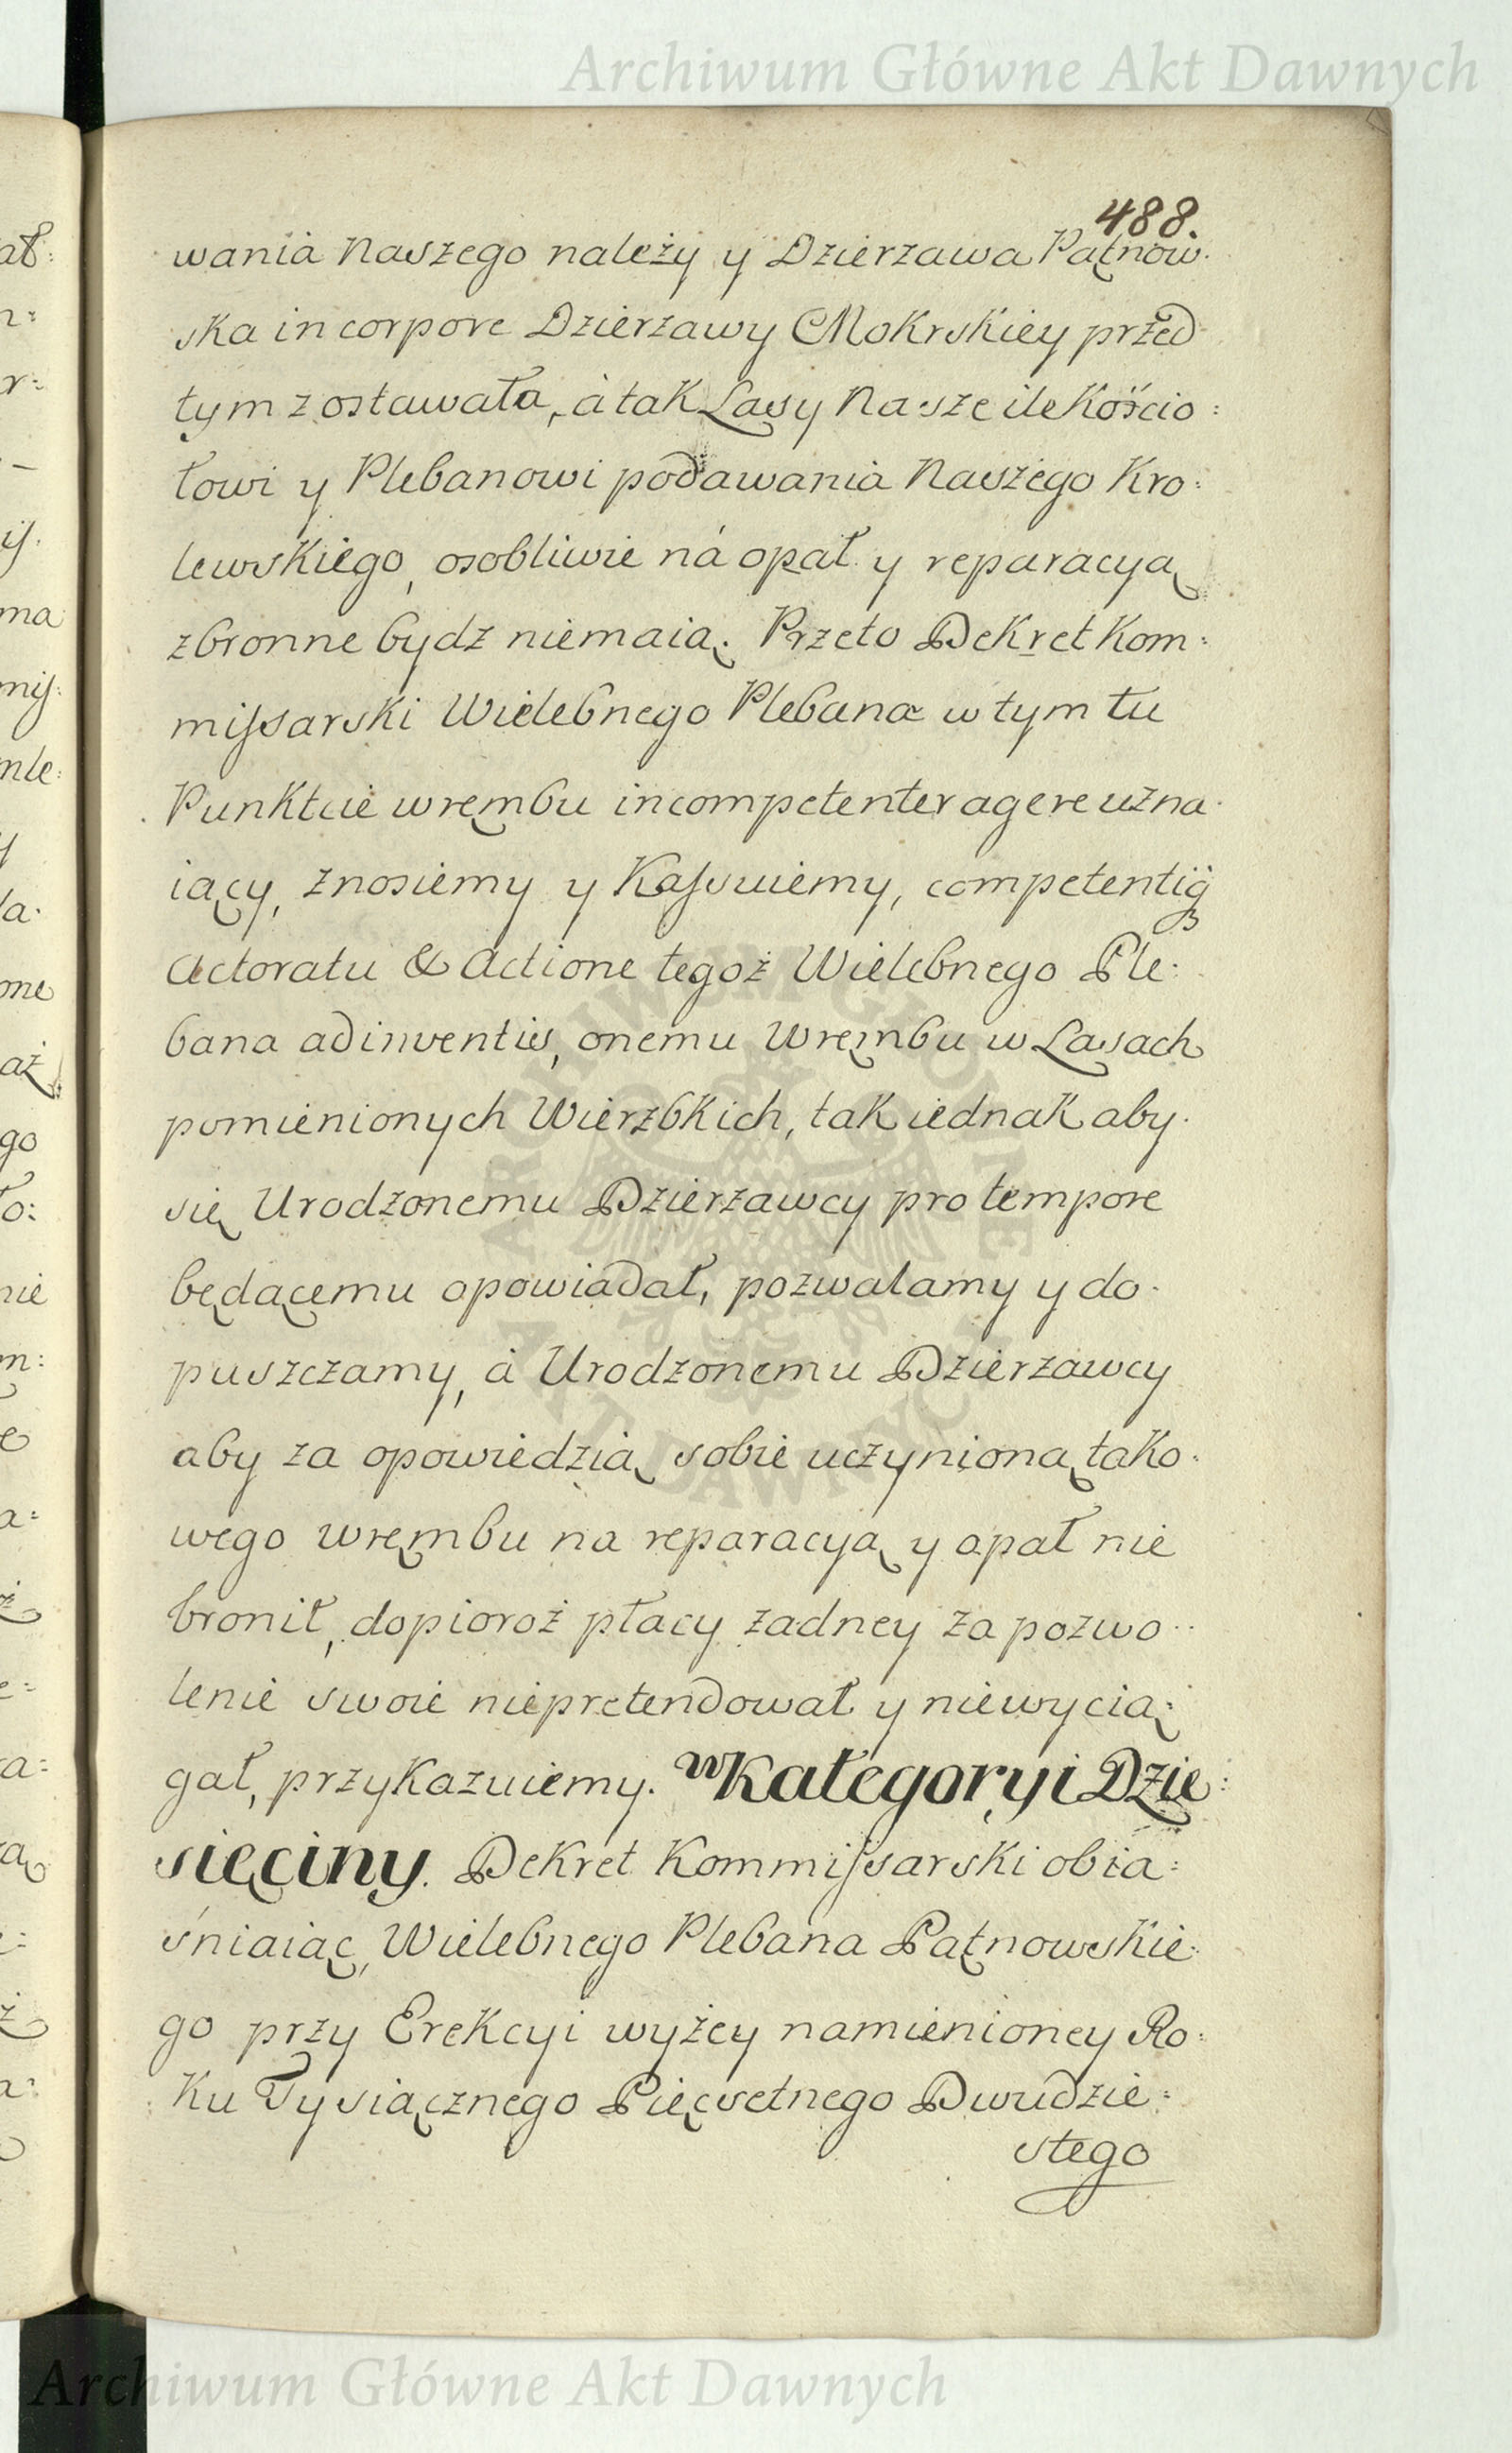 Archiwum Główne Akt Dawnych
488.
wania Naszego należy y Dzierzawa Pątnow.
ska in corpore Dzierzawy Mokrskiey przed
tym zostawała, à tak Lasy Nasze ile Kościo:
łowi y Plebanowi podawania Naszego Kro:
lewskiego, osobliwie ná opał y reparacyą
zbronne bydz niemaią. Przeto Dekret Kom:
missarski Wielebnego Plebana w tym tu
Punktcie wrembu incompetenter agere uzna
iący, znosiemy y Kassuiemy, competentiq3
Actoratu & Actione tegoż Wielebnego Ple:
bana adinventis, onemu Wrembu w Lasach
pomienionych Wierzbkich, tak iednak aby
się Urodzonemu Dzierzawcy pro tempore
będącemu opowiadał, pozwalamy y do
puszczamy, à Urodzonemu Dzierzawcy
aby za opowiedzią sobie uczynioną tako
wego wrembu na reparacyą y opał nie
bronił, dopioroż płacy żadney za pozwo
lenie swoie niepretendował y niewycią:
gał, przykazuiemy. W Kategoryi Dzie:
sięciny. Dekret Kommissarski obia:
śniaiąc, Wielebnego Plebana Pątnowskie
go przy Erekcyi wyżey namienioney Ro:
ku Tysiącznego Pięcsetnego Dwudzie:
stego
Archiwum Główne Akt Dawnych